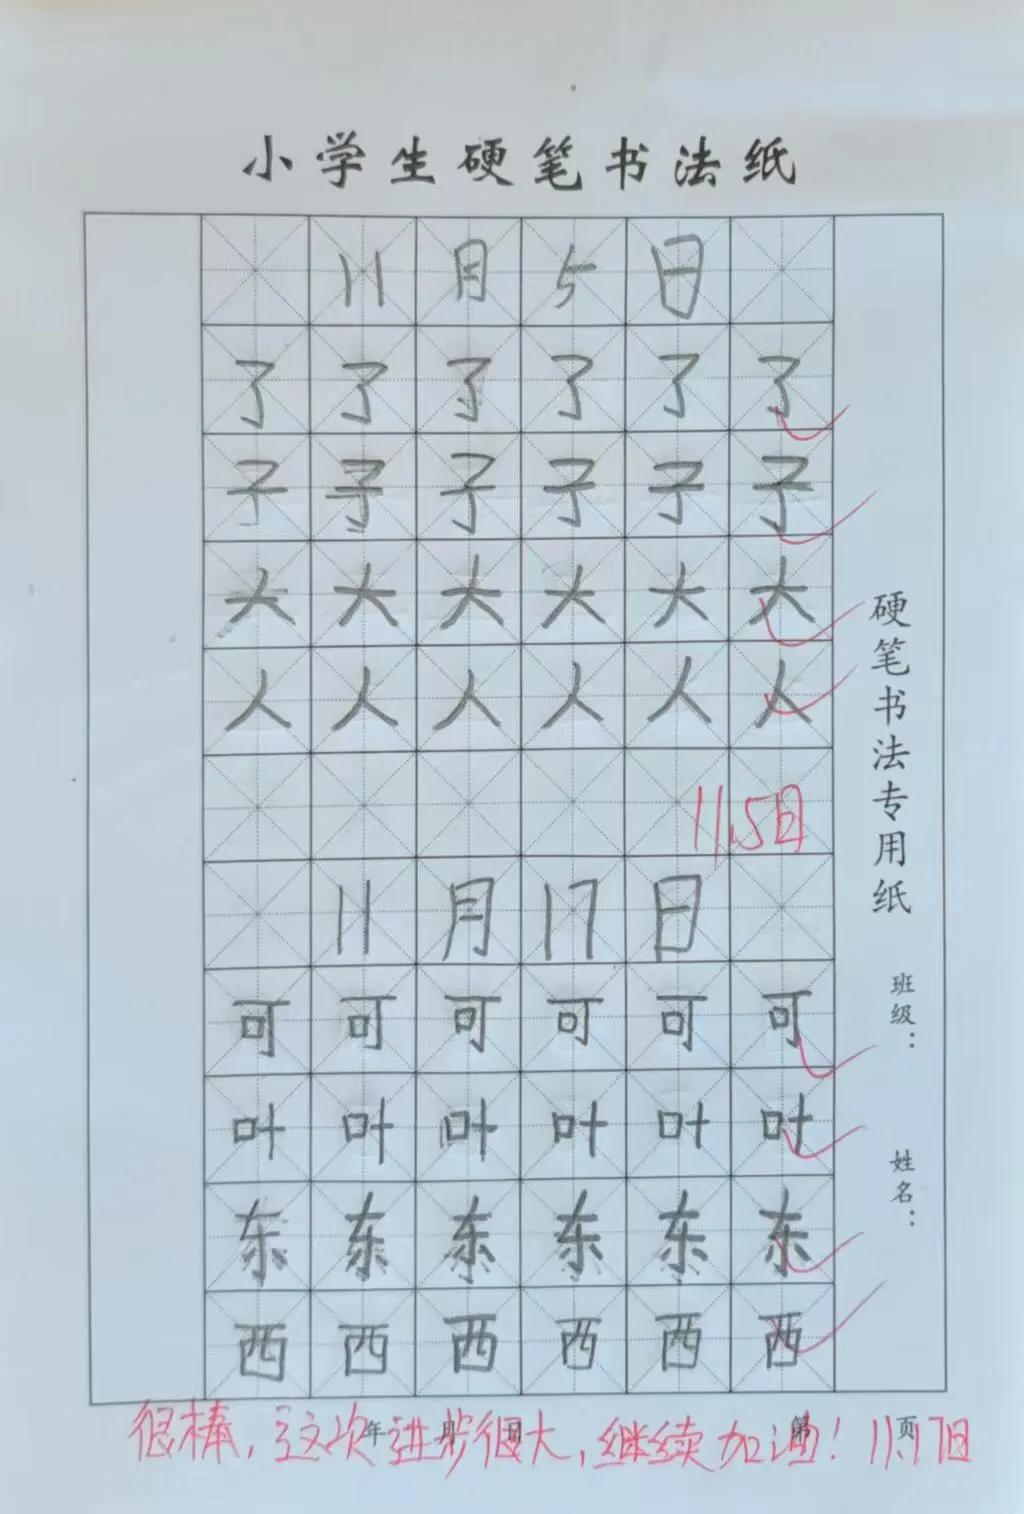 小学生硬笔书法纸
11月5日
了了了了了了
子子子子子子
大大大大大大
人人人人人人
11.5日
11月17日
可可可可可可
叶叶叶叶叶叶
东东东东东东
西西西西西西
硬笔书法专用纸
班级：
姓名：
年 月 日 第 页
很棒，这次进步很大，继续加油！11.17日